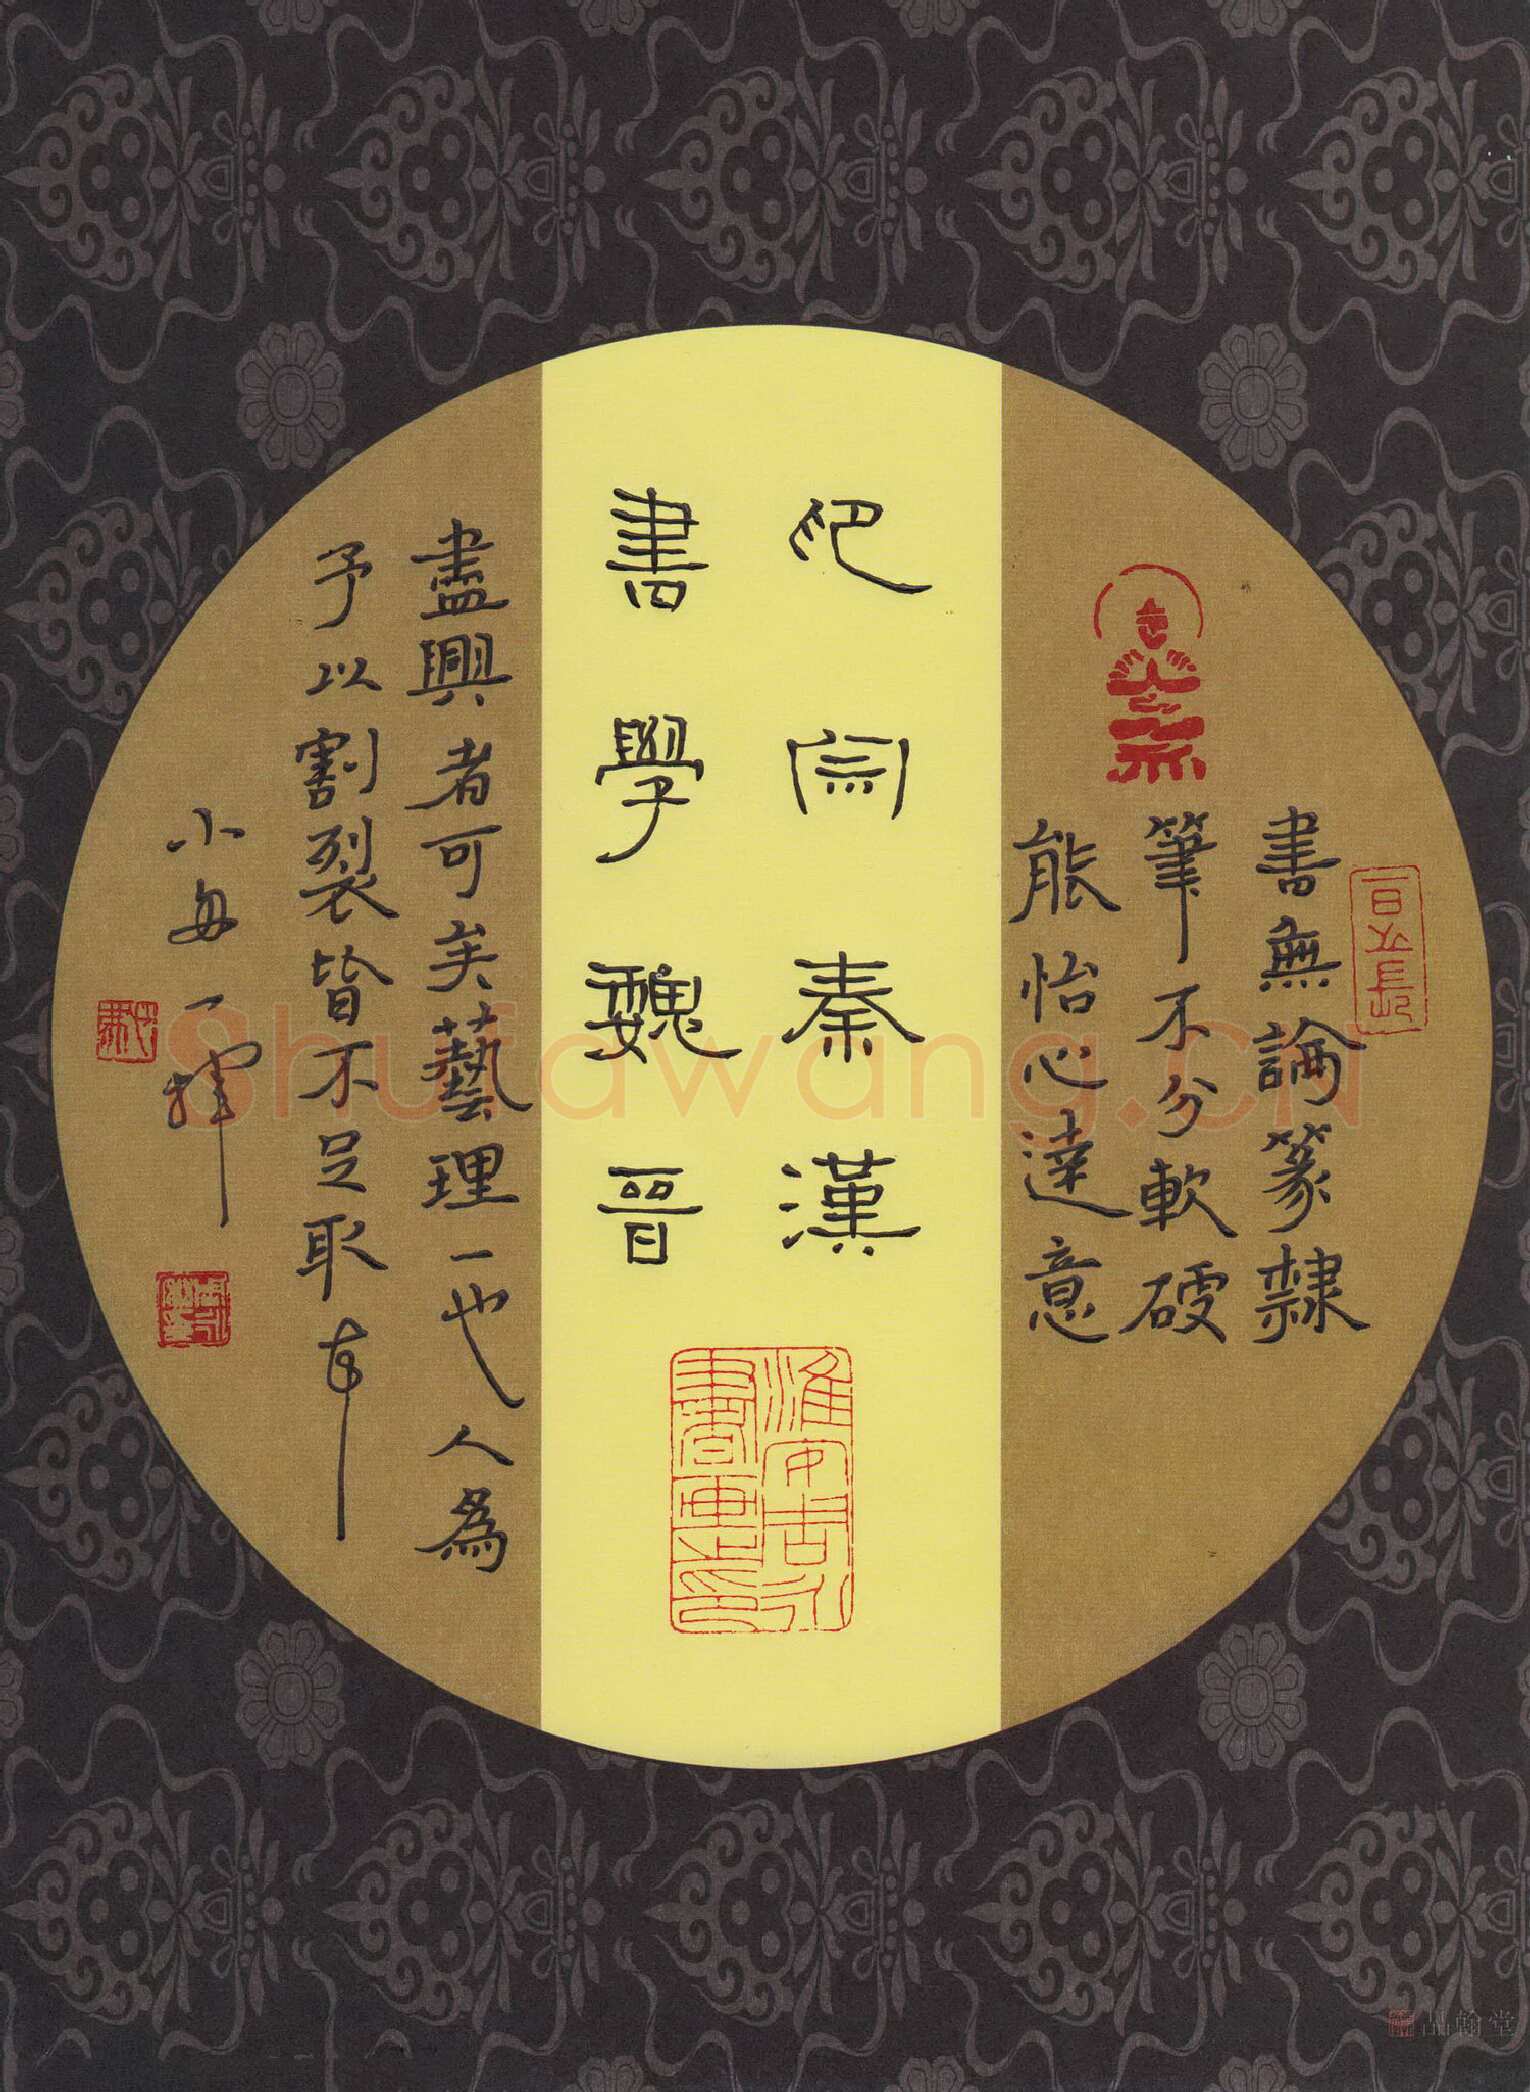 書無論篆隸
筆不分軟硬
能怡心達意
印宗秦漢
書學魏晉
盡興者可矣藝理一也人為
予以割裂皆不足取
小毎一揮
淮安吉永
書画之印
Shufawang.CN
品翰堂